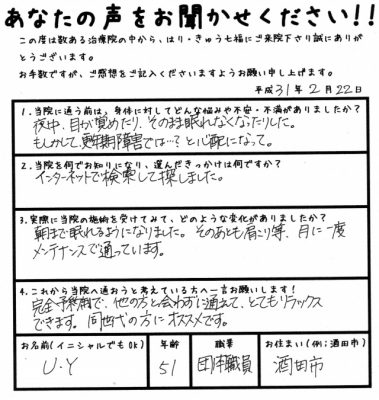 あなたの声をお聞かせください!!
この度は数ある治療院の中から、はり・きゅう七福にご来院下さり誠にありが
とうございます。
お手数ですが、ご感想をご記入くださいますようお願い申し上げます。
平成31年2月22日
1.当院に通う前は、身体に対してどんな悩みや不安・不満がありましたか?
夜中、目が覚めたり、そのまま眠れなくなったりした。
もしかして、更年期障害では…?と心配になって。
2.当院を何でお知りになり、選んだきっかけは何ですか?
インターネットで検索して探しました。
3.実際に当院の施術を受けてみて、どのような変化がありましたか?
朝まで眠れるようになりました。そのあとも肩こり等、月に一度
メンテナンスで通っています。
4.これから当院へ通おうと考えている方へ一言お願いします!
完全予約制で、他の方と会わずに通えて、とてもリラックス
できます。同世代の方にオススメです。
お名前(イニシャルでもOK) 年齢 職業 お住まい(例:酒田市)
U・Y 51 団体職員 酒田市